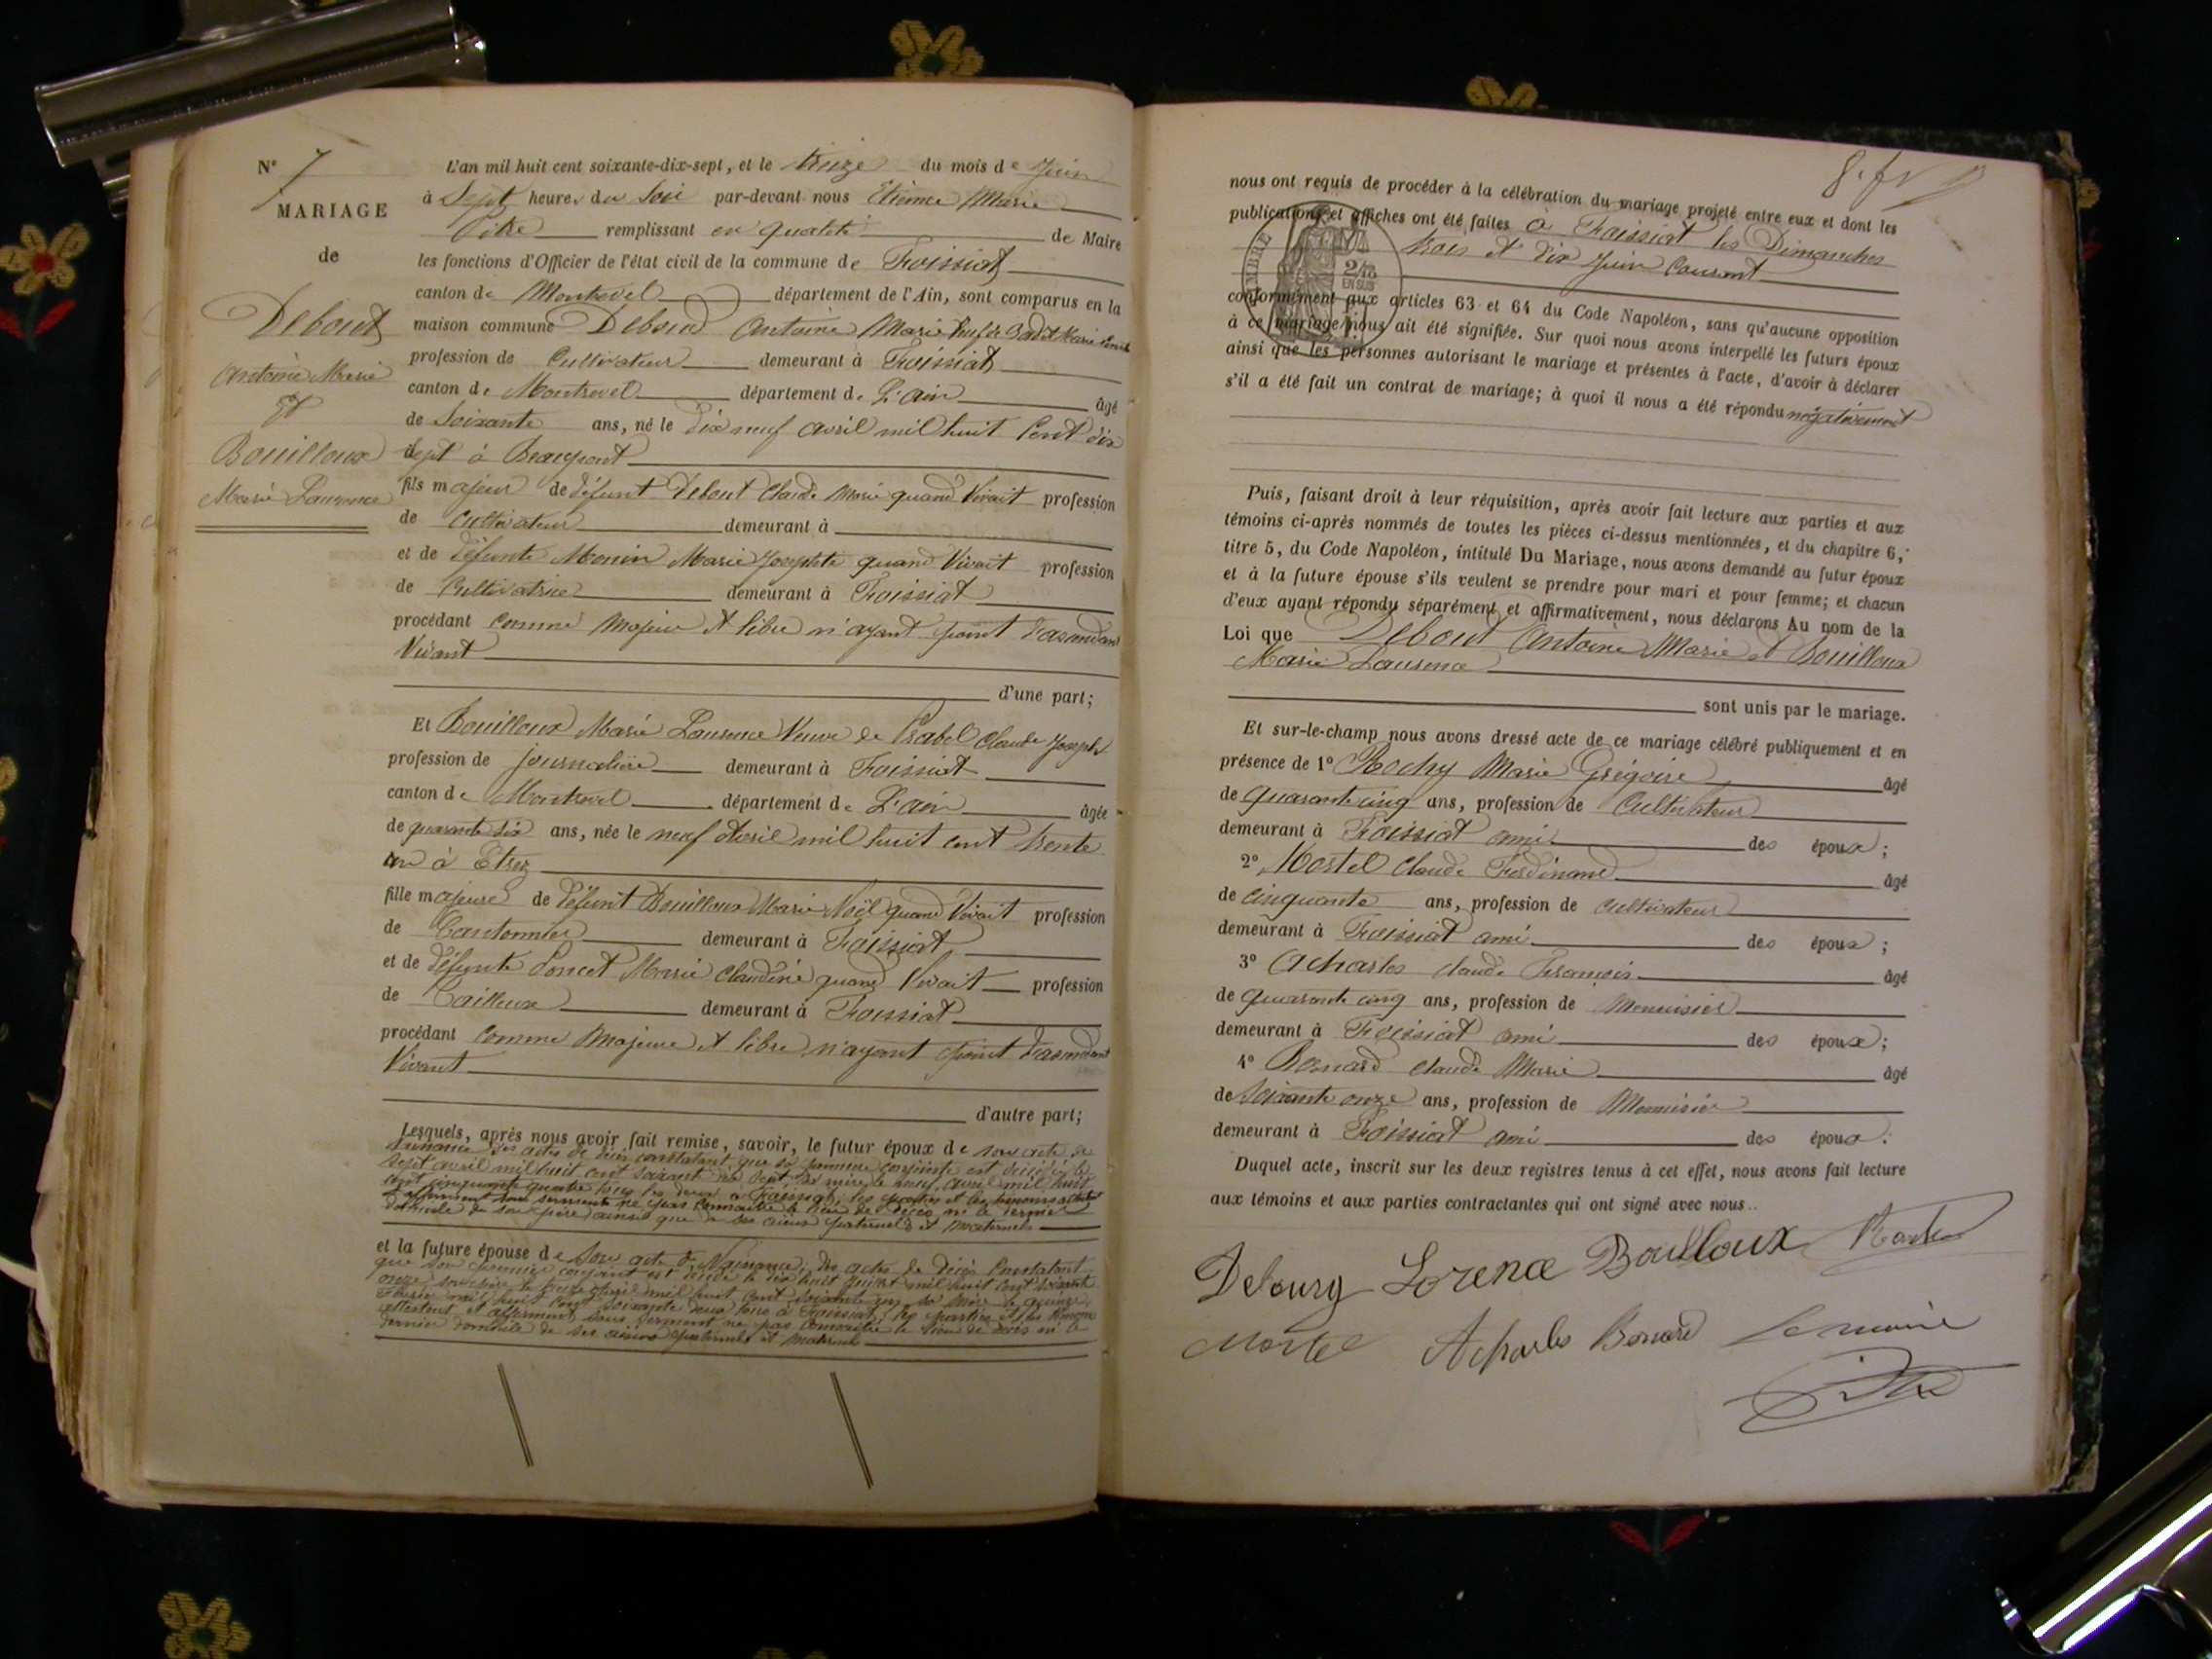 N° 7
MARIAGE
de
Debout
Antoine Marie
Et
Bouilloux
Marie Laurence
L'an mil huit cent soixante-dix-sept, et le treize du mois de Juin
à Sept heures du Soir par-devant nous Etienne Marie
Pitre remplissant en qualité de Maire
les fonctions d'Officier de l'état civil de la commune de Foissiat
canton de Montrevel département de l'Ain, sont comparus en la
maison commune Debout Antoine Marie Veuf de Marie
profession de Cultivateur demeurant à Foissiat
canton de Montrevel département de L'ain âgé
de Soixante ans, né le dix neuf avril mil huit Cent dix
sept à Beaupont
fils majeur de défunt Debout Claude Marie quand Vivait profession
de Cultivateur demeurant à
et de défunte Monin Marie Josephte quand Vivait profession
de Cultivatrice demeurant à Foissiat
procédant Comme Majeur et libre n'ayant point d'asendant
Vivant
d'une part;
Et Bouilloux Marie Laurence Veuve de Claude Joseph
profession de journalière demeurant à Foissiat
canton de Montrevel département de L'ain âgée
de quarante six ans, née le neuf avril mil huit cent trente
un à Etrez
fille majeure de défunt Bouilloux Marie Noël quand Vivait profession
de Cantonnier demeurant à Foissiat
et de défunte Poncet Marie Claudine quand Vivait profession
de demeurant à Foissiat
procédant Comme Majeure et libre n'ayant point d'asendant
Vivant
d'autre part;
Lesquels, après nous avoir fait remise, savoir, le futur époux de son acte de
naissance des actes de décès constatant que sa première conjointe est décédée le
sept avril mil huit cent soixant dix sept, sa mère le neuf avril mil huit
cent cinquante quatre tous les deux à Foissiat, les parties et les témoins attestent
et affirment sous serment ne pas connaitre le lieu de décès ni le dernier
domicile de son père ainsi que de ses aieux paternels et maternels
et la future épouse de Son acte de Naissance, des actes de décès Constatant
que son premier conjoint est décédé le dix huit Juillet mil huit cent soixante
onze, son père le avril mil huit cent soixante un, sa mère le quinze
Février mil huit cent soixante deux tous à Foissiat, les parties et les témoins
attestent et affirment sous serment ne pas Connaitre le lieu de décès ni le
dernier domicile de ses aieux paternels et maternels
nous ont requis de procéder à la célébration du mariage projeté entre eux et dont les
publications et affiches ont été faites à Foissiat les Dimanches
trois et dix Juin Courant
TIMBRE
2/10
EN SUS
conformément aux articles 63 et 64 du Code Napoléon, sans qu'aucune opposition
à ce mariage nous ait été signifiée. Sur quoi nous avons interpellé les futurs époux
ainsi que les personnes autorisant le mariage et présentes à l'acte, d'avoir à déclarer
s'il a été fait un contrat de mariage; à quoi il nous a été répondu négativement
Puis, faisant droit à leur réquisition, après avoir fait lecture aux parties et aux
témoins ci-après nommés de toutes les pièces ci-dessus mentionnées, et du chapitre 6,
titre 5, du Code Napoléon, intitulé Du Mariage, nous avons demandé au futur époux
et à la future épouse s'ils veulent se prendre pour mari et pour femme; et chacun
d'eux ayant répondu séparément et affirmativement, nous déclarons Au nom de la
Loi que Debout Antoine Marie et Bouilloux
Marie Laurence
sont unis par le mariage.
Et sur-le-champ nous avons dressé acte de ce mariage célébré publiquement et en
présence de 1° Rochy Marie Grégoire âgé
de quarante cinq ans, profession de Cultivateur
demeurant à Foissiat ami des époux;
2° Mortel Claude Ferdinand âgé
de cinquante ans, profession de Cultivateur
demeurant à Foissiat ami des époux;
3° Acharles Claude François âgé
de quarante cinq ans, profession de Menuisier
demeurant à Foissiat ami des époux;
4° Bernard Claude Marie âgé
de Soixante onze ans, profession de Menuisier
demeurant à Foissiat ami des époux.
Duquel acte, inscrit sur les deux registres tenus à cet effet, nous avons fait lecture
aux témoins et aux parties contractantes qui ont signé avec nous..
Debourg Lorence Boulloux
Mortel Acharles Bernard le maire